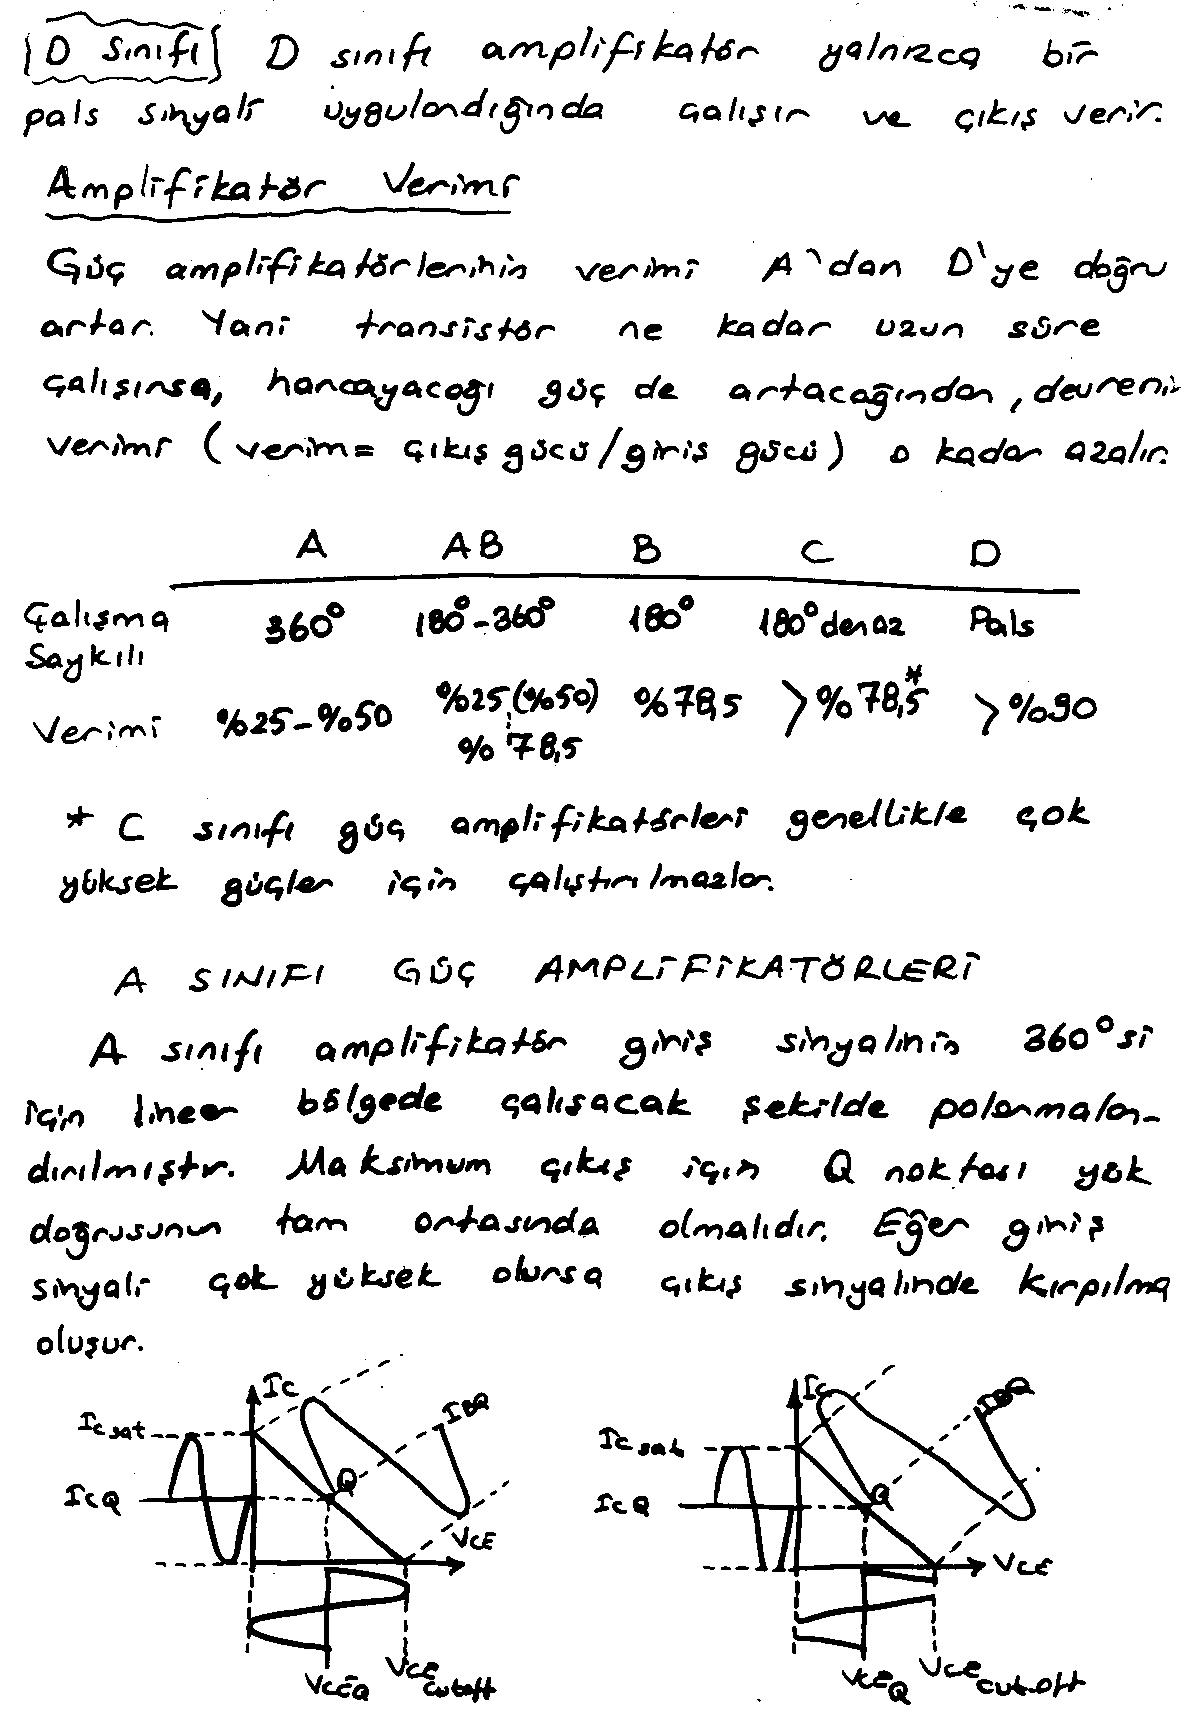 D Sınıfı D sınıfı amplifikatör yalnızca bir
pals sinyali uygulandığında çalışır ve çıkış verir.
Amplifikatör Verimi
Güç amplifikatörlerinin verimi A'dan D'ye doğru
artar. Yani transistör ne kadar uzun süre
çalışırsa, harcayacağı güç de artacağından, devrenin
verimi (verim= çıkış gücü/giriş gücü) o kadar azalır.
A AB B C D
Çalışma Saykılı 360° 180°-360° 180° 180°den az Pals
Verimi %25-%50 %25(%50) %78,5 >%78,5* >%90
%78,5
* C sınıfı güç amplifikatörleri genellikle çok
yüksek güçler için çalıştırılmazlar.
A SINIFI GÜÇ AMPLİFİKATÖRLERİ
A sınıfı amplifikatör giriş sinyalinin 360°si
için lineer bölgede çalışacak şekilde polarmalan-
dırılmıştır. Maksimum çıkış için Q noktası yük
doğrusunun tam ortasında olmalıdır. Eğer giriş
sinyali çok yüksek olursa çıkış sinyalinde kırpılma
oluşur.
Ic Ic
Ic sat IBQ Ic sat IBQ
IcQ Q IcQ Q
VCE VCE
VCEQ VCE cutoff VCEQ VCE cut-off